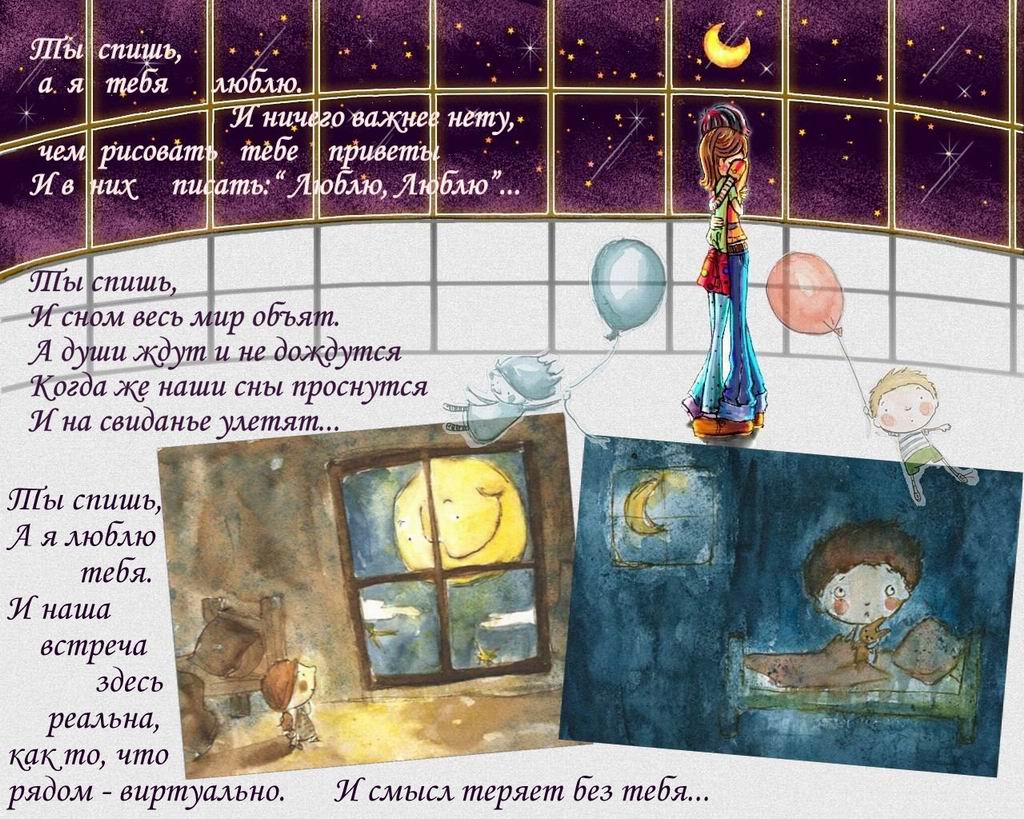 Ты спишь,
а я тебя люблю.
И ничего важнее нету,
чем рисовать тебе приветы
И в них писать: “ Люблю, Люблю”...
Ты спишь,
И сном весь мир объят.
А души ждут и не дождутся
Когда же наши сны проснутся
И на свиданье улетят...
Ты спишь,
А я люблю
тебя.
И наша
встреча
здесь
реальна,
как то, что
рядом - виртуально.
И смысл теряет без тебя...